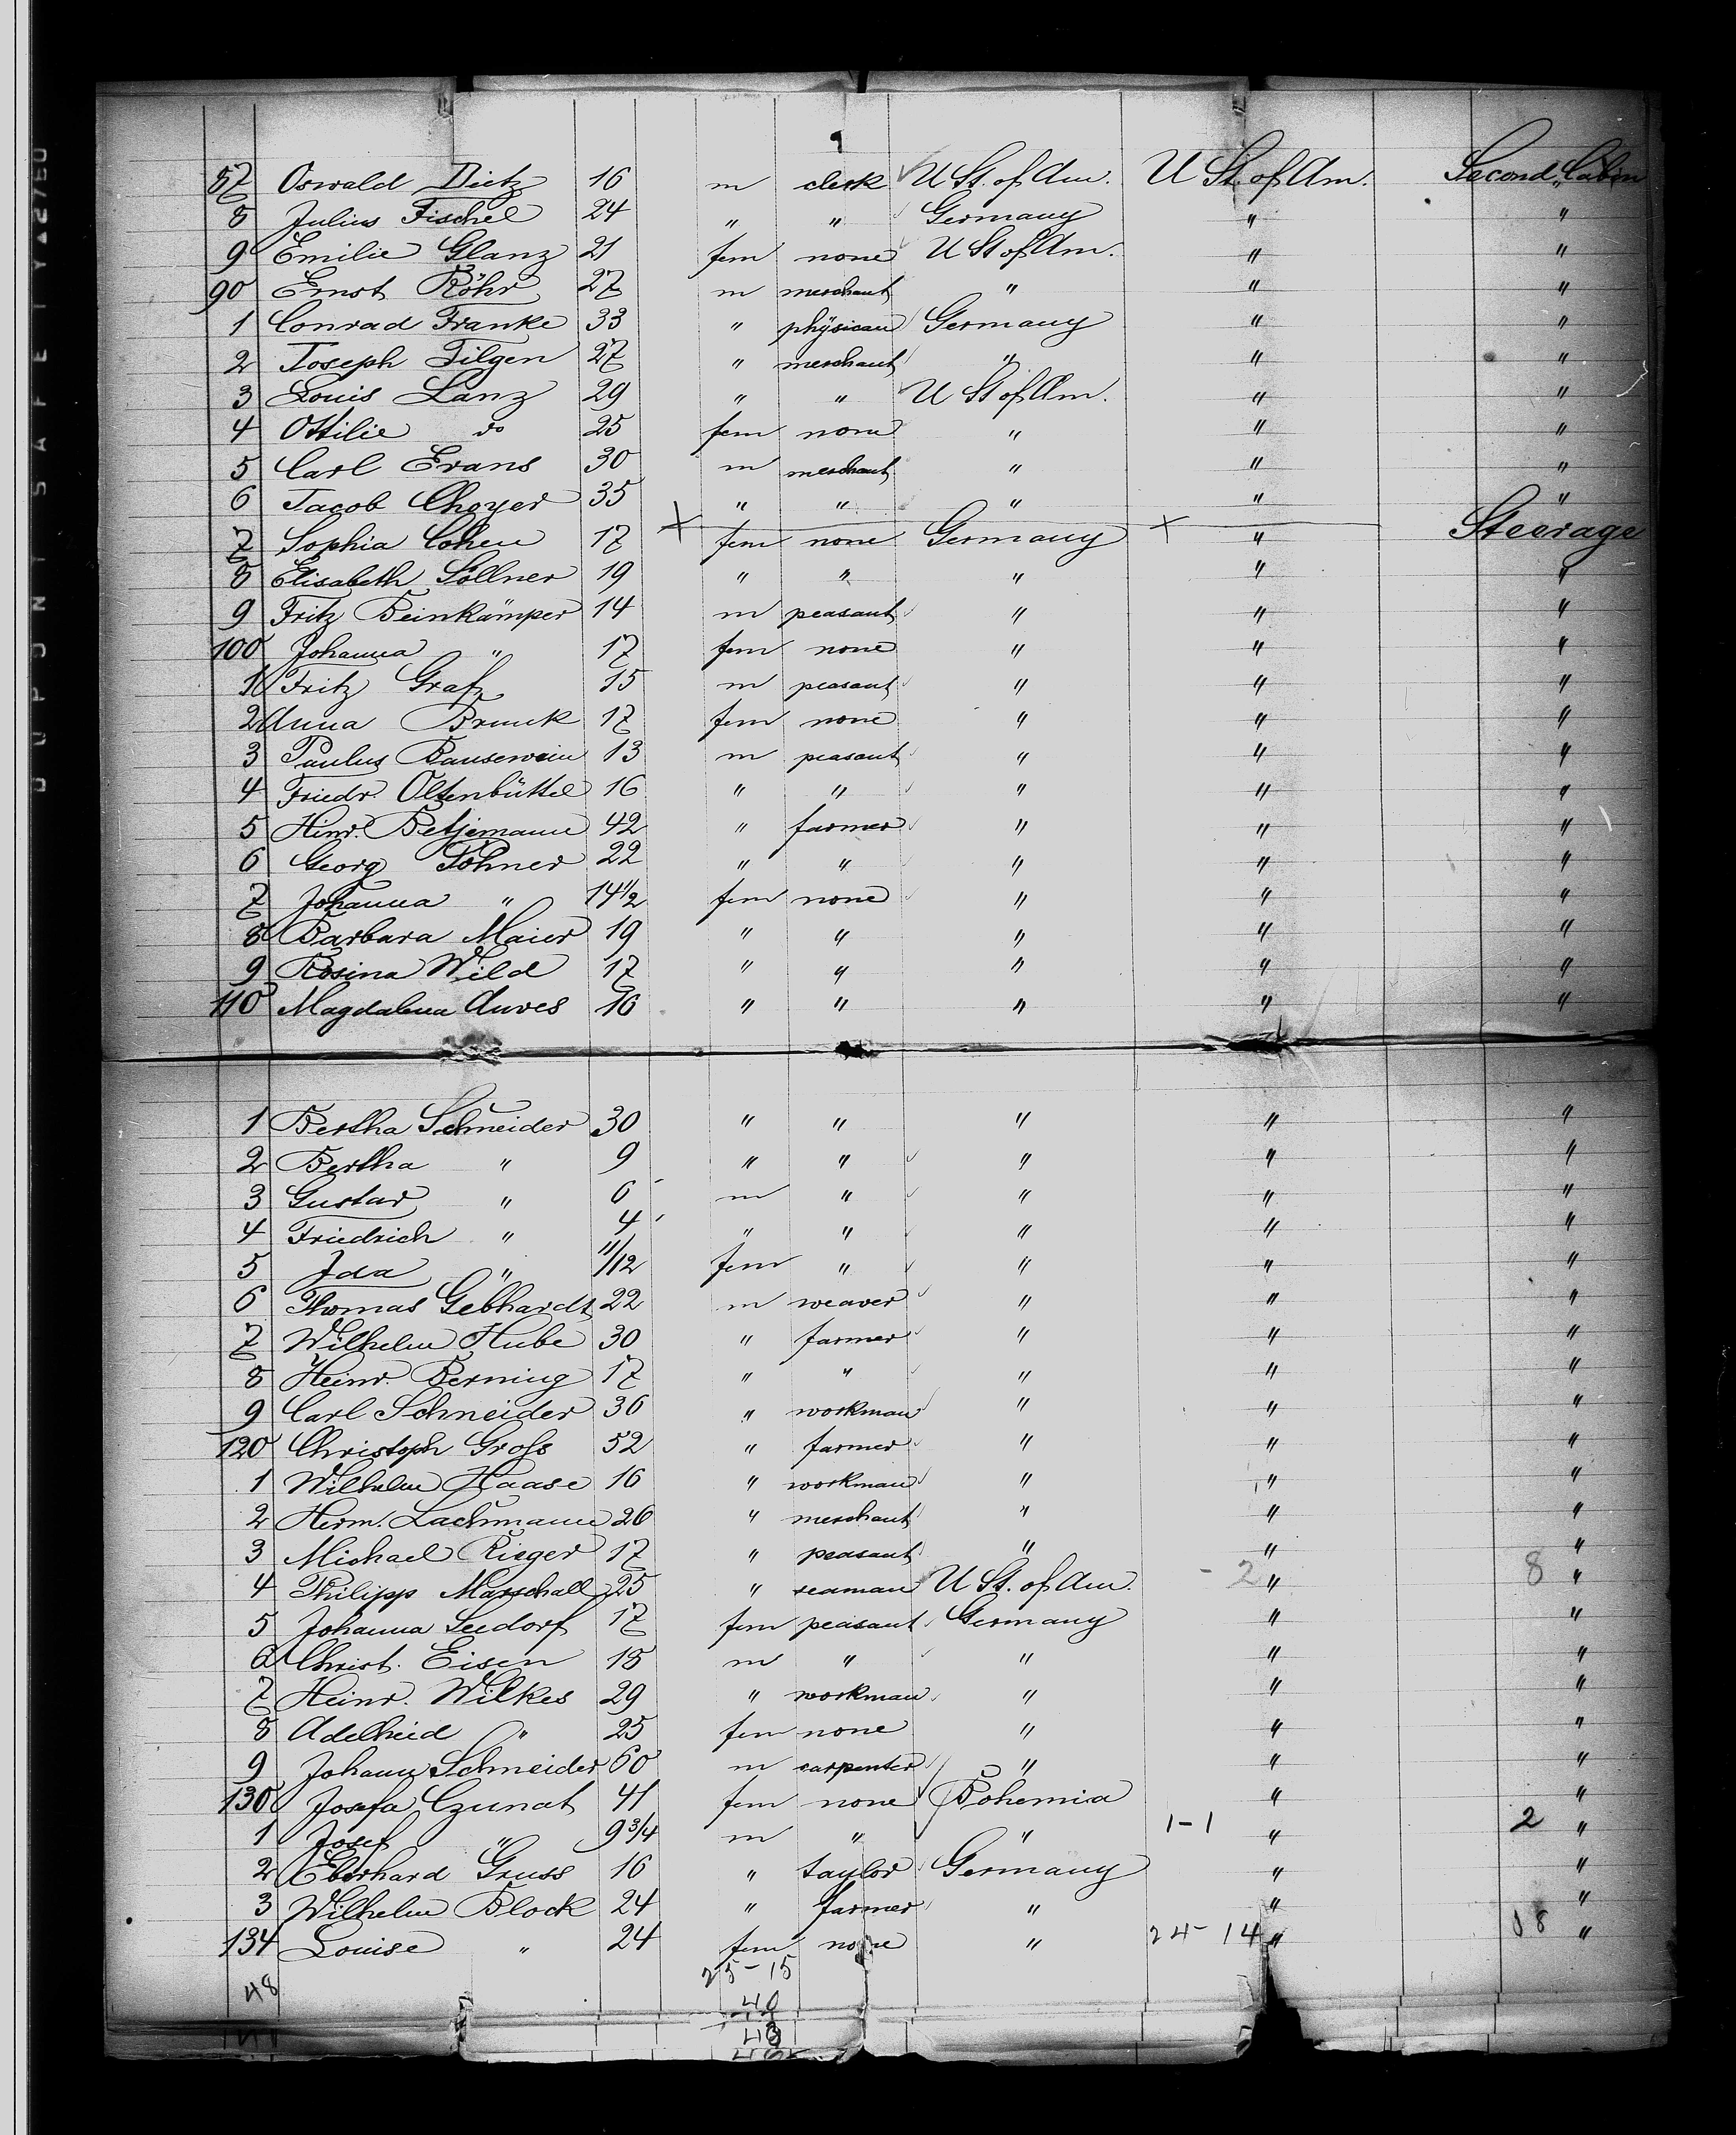 87 Oswald Dietz 16 m clerk U St. of Am. U St. of Am. Second Cabin
8 Julius Fischel 24 " " Germany " "
9 Emilie Glanz 21 fem none U St of Am. " "
90 Ernst Röhr 27 m merchant " " "
1 Conrad Franke 33 " physican Germany " "
2 Joseph Filgen 27 " merchant " " "
3 Louis Lanz 29 " " U St of Am. " "
4 Ottilie do 25 fem none " " "
5 Carl Evans 30 m merchant " " "
6 Jacob Choyer 35 " " " " "
7 Sophia Cohen 17 fem none Germany " Steerage
8 Elisabeth Söllner 19 " " " " "
9 Fritz Beinkämper 14 m peasant " " "
100 Johanna " 17 fem none " " "
1 Fritz Graf 15 m peasant " " "
2 Anna Brunk 17 fem none " " "
3 Paulus Bausewein 13 m peasant " " "
4 Friedr. Oltenbüttel 16 " " " " "
5 Hinr. Betjemann 42 " farmer " " "
6 Georg Pöhner 22 " " " " "
7 Johanna " 14 1/2 fem none " " "
8 Barbara Maier 19 " " " " "
9 Rosina Wild 17 " " " " "
110 Magdalena Anves 16 " " " " "
1 Bertha Schneider 30 " " " " "
2 Bertha " 9 " " " " "
3 Gustav " 6 m " " " "
4 Friedrich " 4 " " " " "
5 Ida " 11/12 fem " " " "
6 Thomas Gebhardt 22 m weaver " " "
7 Wilhelm Hube 30 " farmer " " "
8 Heinr. Berning 17 " " " " "
9 Carl Schneider 36 " workman " " "
120 Christoph Groß 52 " farmer " " "
1 Wilhelm Haase 16 " workman " " "
2 Herm. Lachmann 26 " merchant " " "
3 Michael Rieger 17 " peasant " " "
4 Philipp Marschall 25 " seaman U St. of Am. - 2 " 8 "
5 Johanna Seedorf 17 fem peasant Germany " "
6 Christ. Eisen 18 m " " " "
7 Heinr. Wilkes 29 " workman " " "
8 Adelheid " 25 fem none " " "
9 Johann Schneider 60 m carpenter " " "
130 Josefa Czunat 41 fem none Bohemia " "
1 Josef " 9 3/4 m " " 1-1 " 2 "
2 Eberhard Gruss 16 " taylor Germany " "
3 Wilhelm Block 24 " farmer " " "
134 Louise " 24 fem none " 24-14 " 38 "
25-15
48
40
43